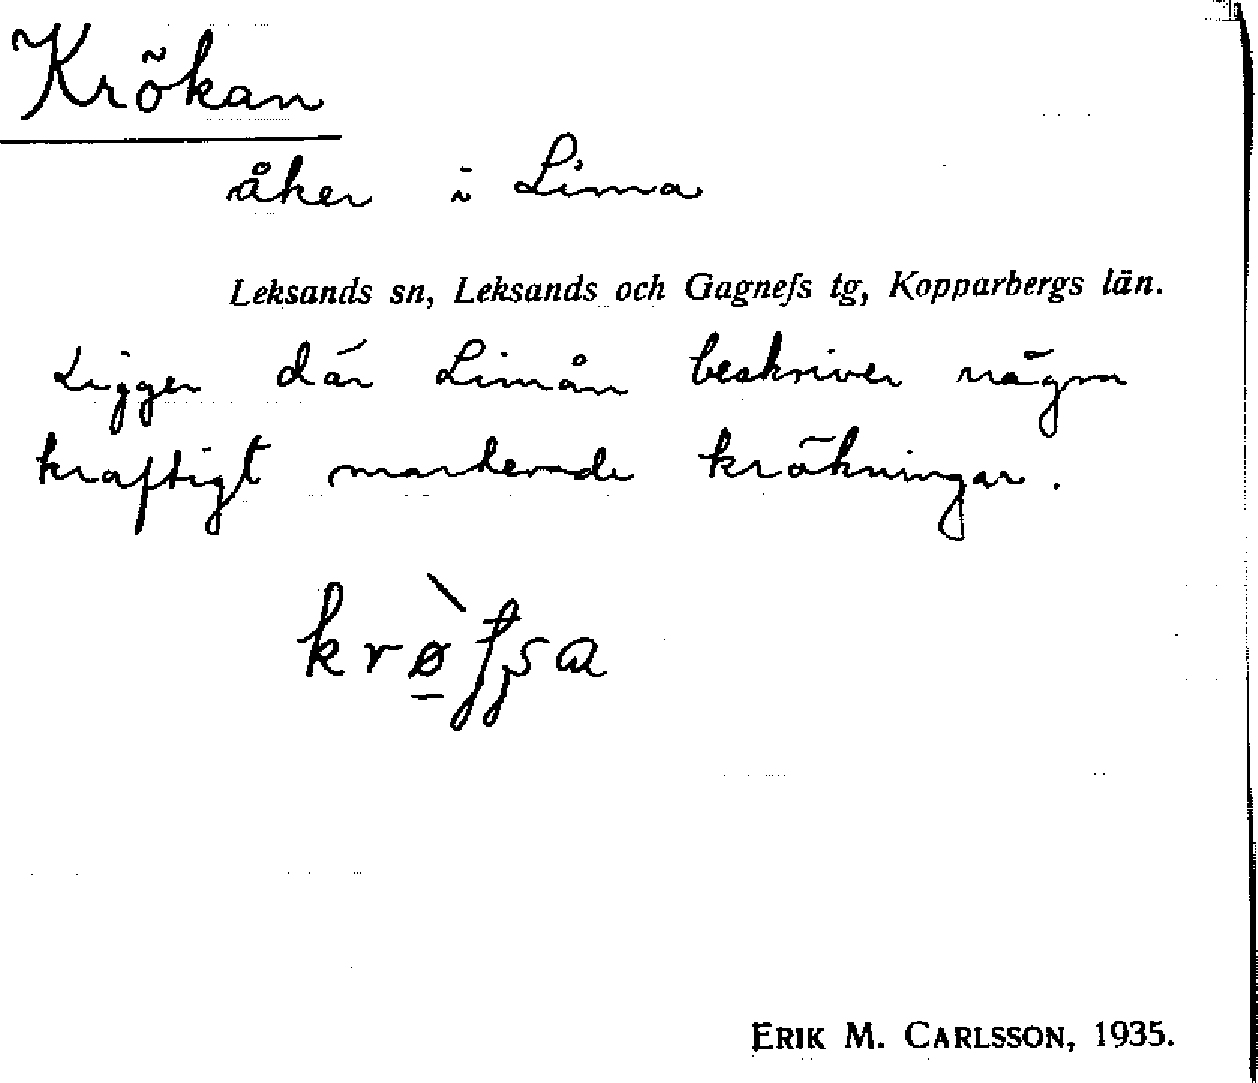 Krökan
åker i Lima
Leksands sn, Leksands och Gagnefs tg, Kopparbergs län.
Ligger där Limån beskriver några
kraftigt markerade krökningar.
ERIK M. CARLSSON, 1935.